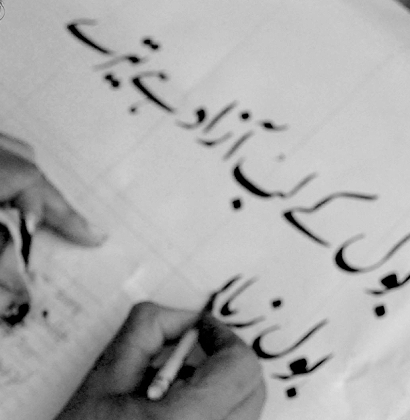 بول کے لب آزاد ہے تیرے
بول زبا